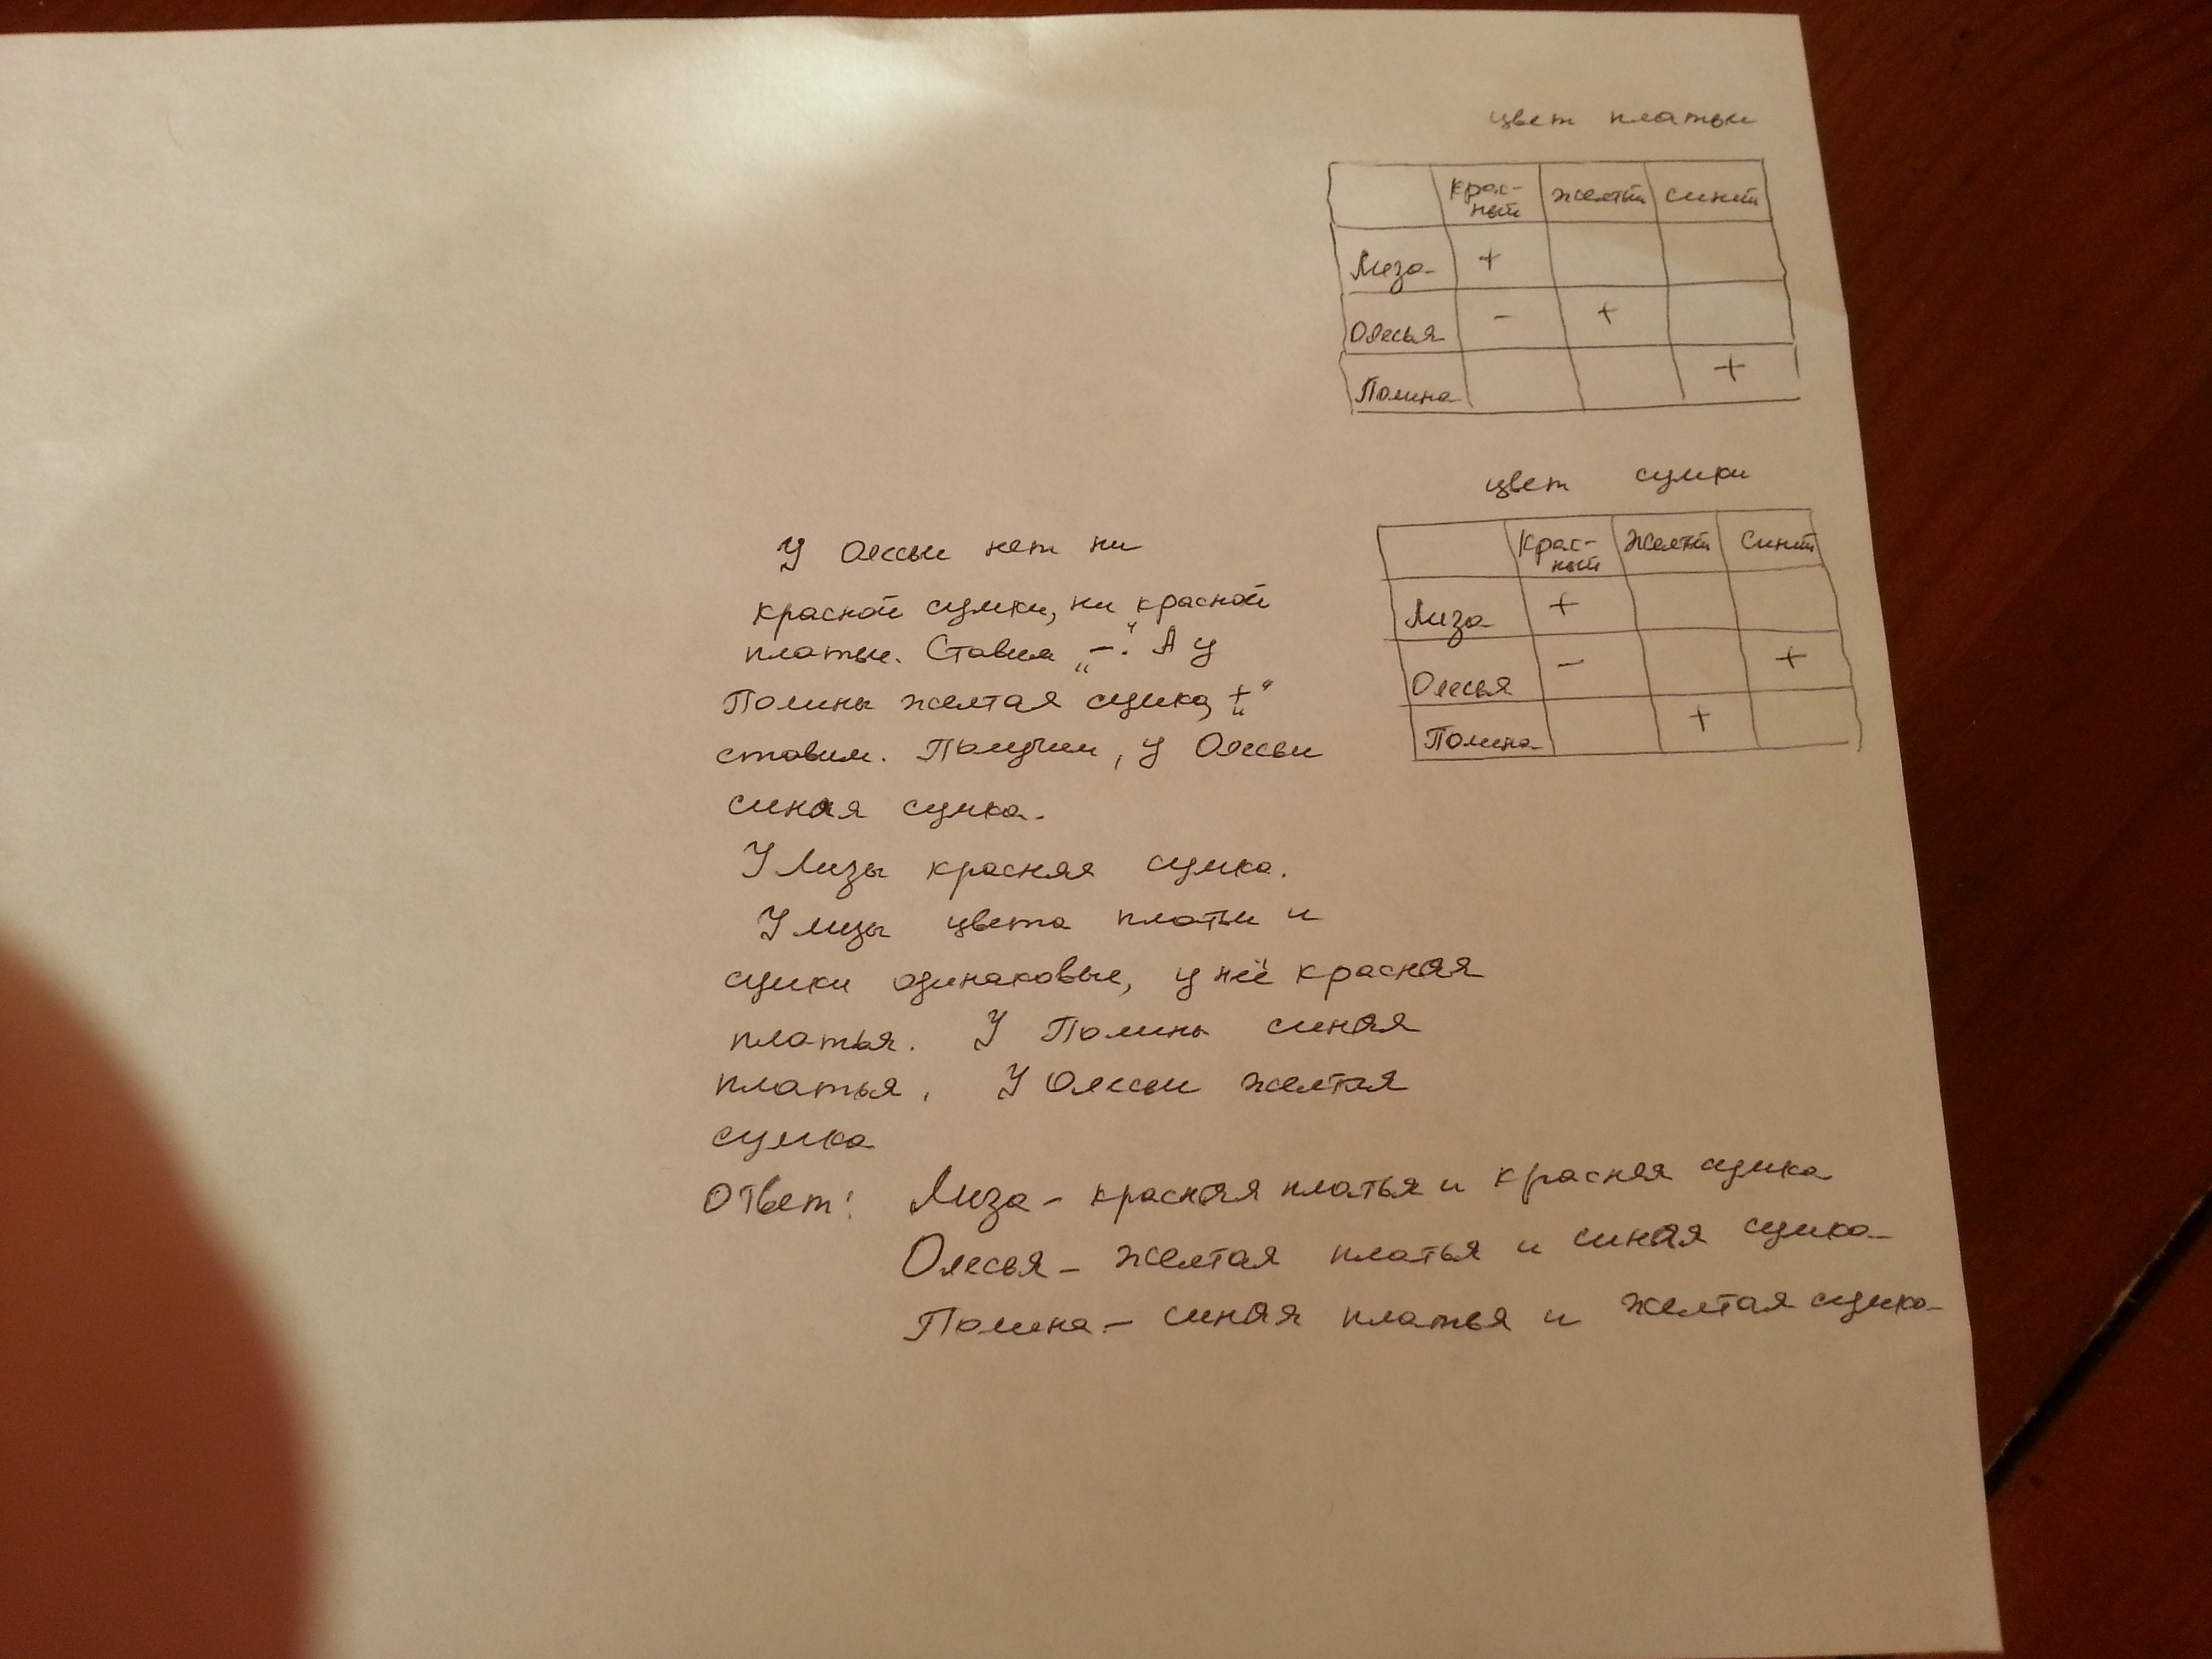 цвет платьи
крас-
ный
желтый
синий
Лиза +
Олесья - +
Полина +
цвет сумки
крас-
ный
желтый
синий
Лиза +
Олесья - +
Полина +
У Олесьи нет ни
красной сумки, ни красной
платьи. Ставим „-“. А у
Полины желтая сумка, „+“
ставим. Получим, у Олесьи
синяя сумка.
У Лизы красная сумка.
У Лизы цвета платьи и
сумки одинаковые, у неё красная
платья. У Полины синяя
платья, У Олесьи желтая
сумка
Ответ: Лиза - красная платья и красная сумка
Олесья - желтая платья и синяя сумка
Полина - синяя платья и желтая сумка